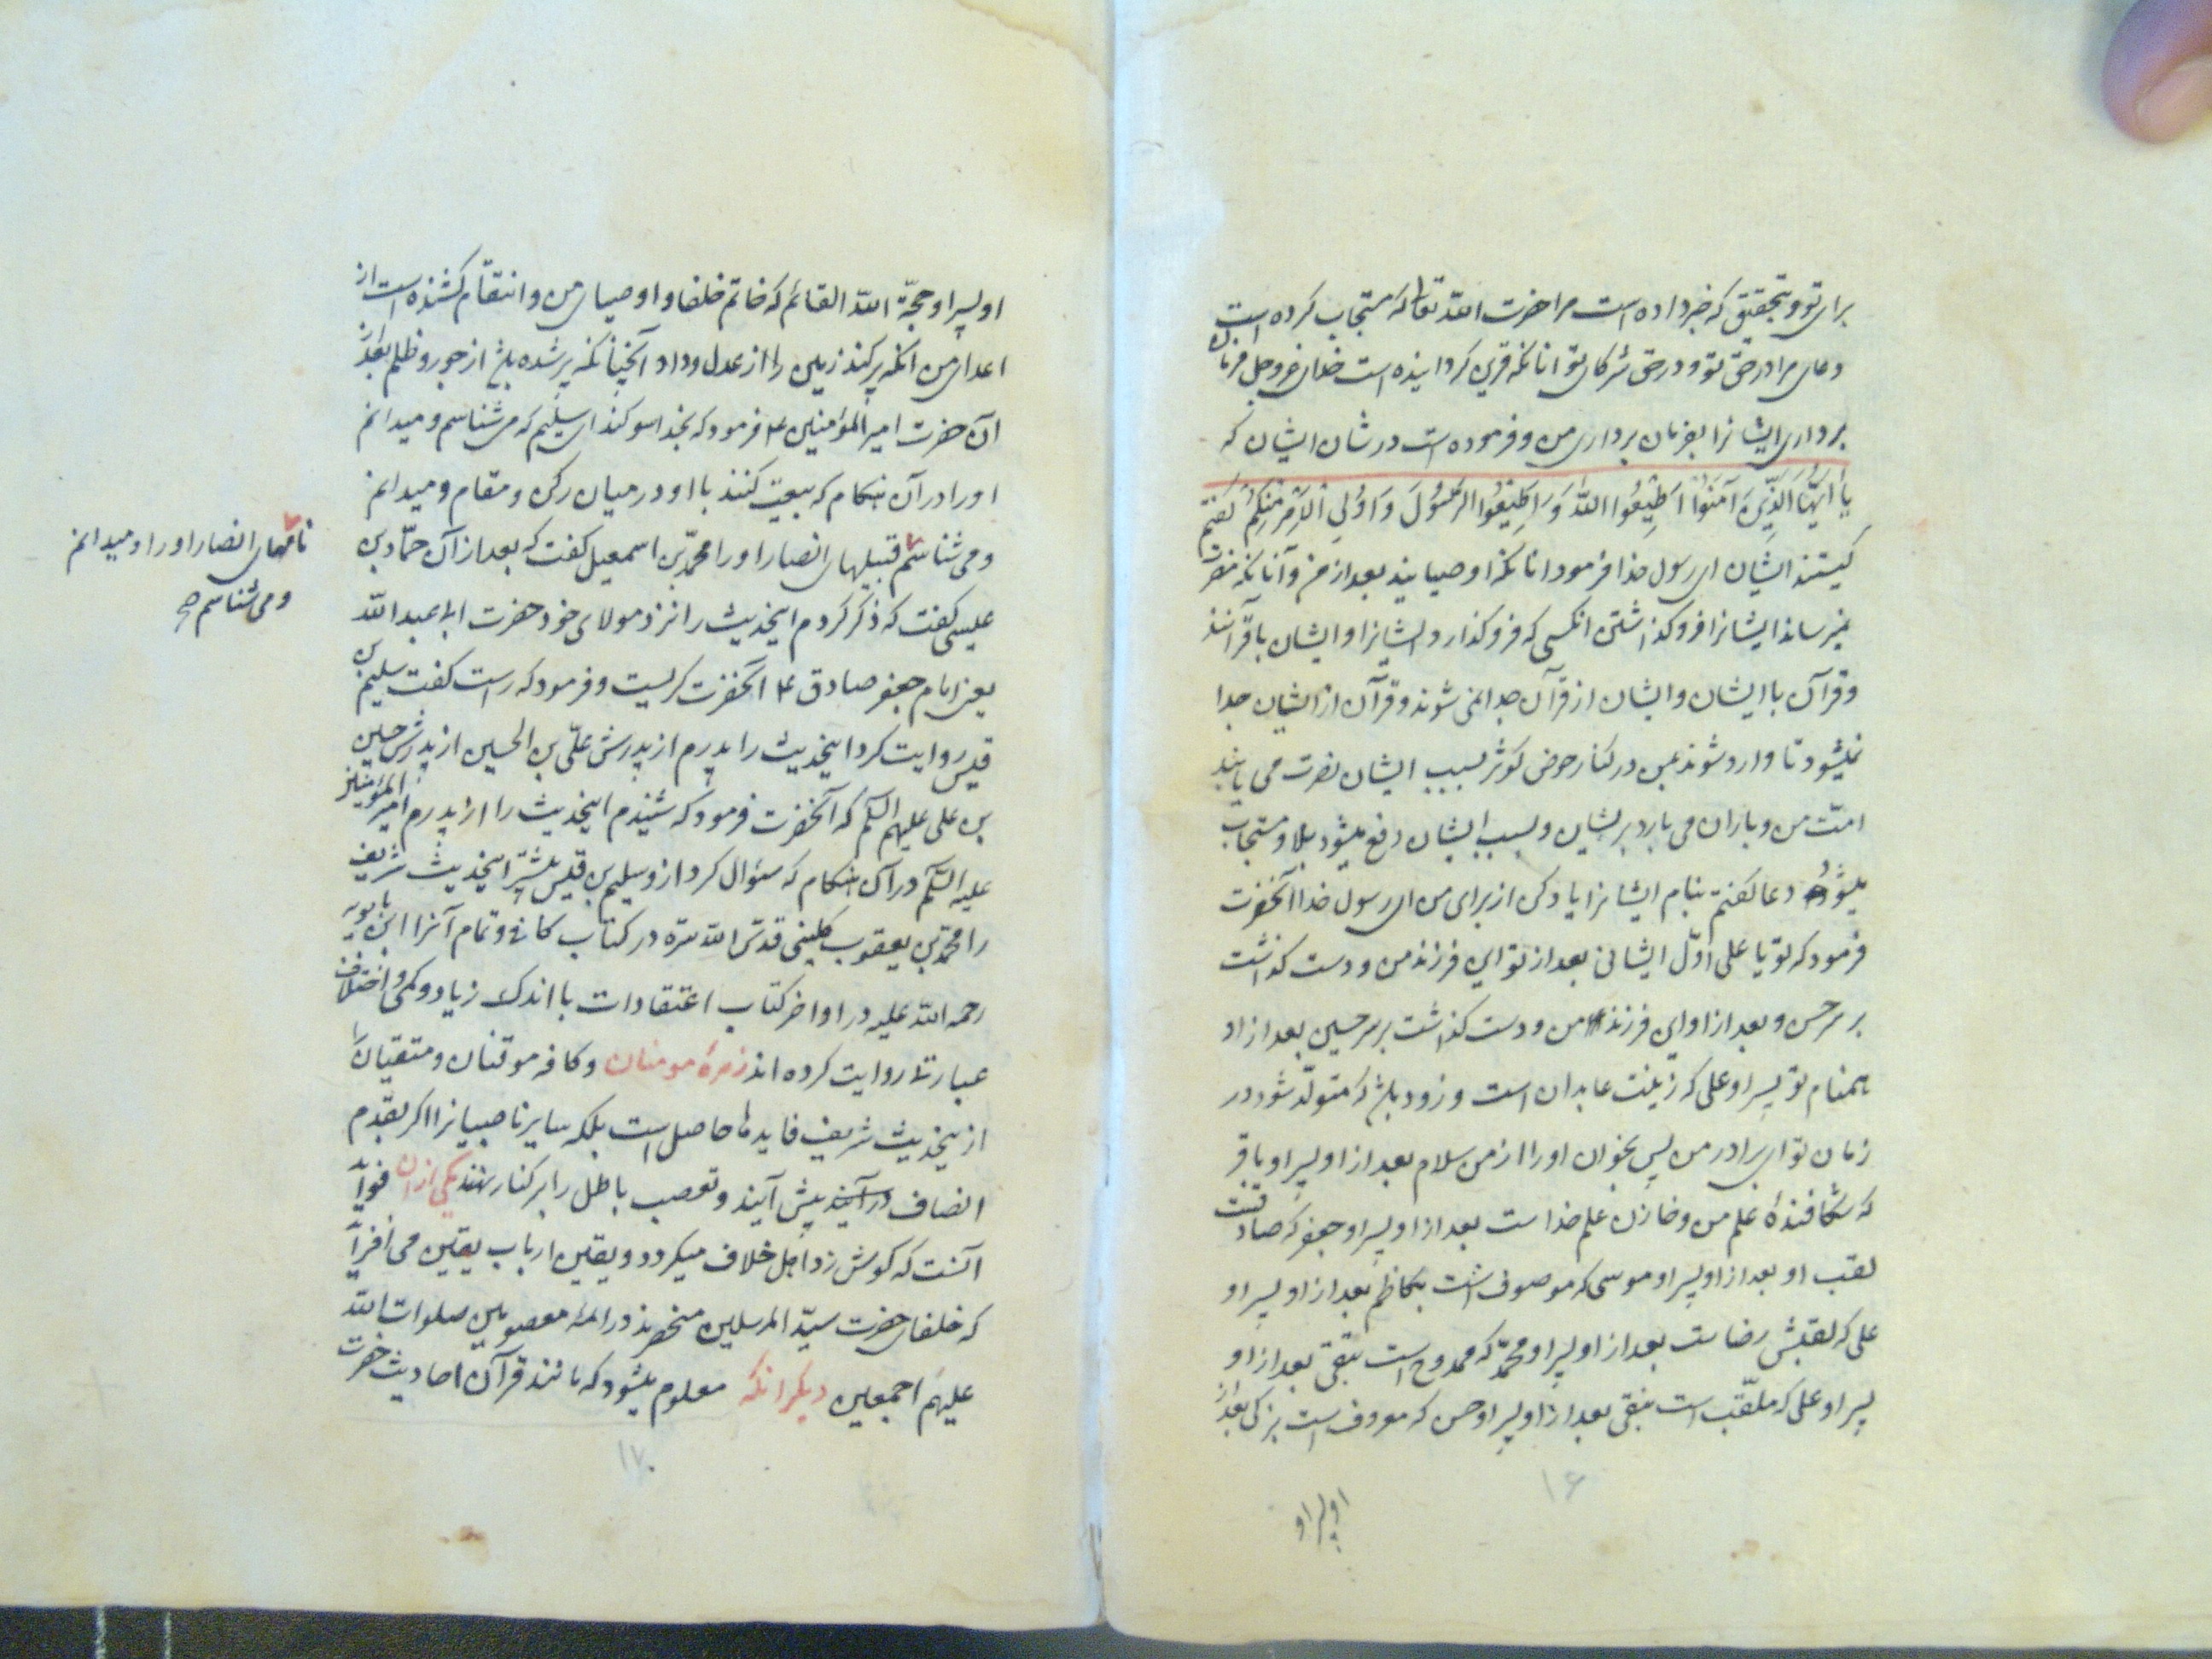 برای تو و بتحقیق که خبر داده است مرا حضرت الله تعالی که مستجاب کرده است
دعای مرا در حق تو و در حق شرکای تو انانکه قرین کردانیده است خدای عز و جل فرمان
برداری ایشانرا بفرمان برداری من و فرموده است در شان ایشان که
یا أَیُّهَا الَّذِینَ آمَنُوا اَطِیعُوا اللّٰهَ وَ اَطِیعُوا الرَّسُولَ وَ اُولِی الْاَمْرِ مِنْکُمْ کفتم
کیستند ایشان ای رسول خدا فرمود انانکه اوصیایند بعد از من و آنانکه مضرت
نمیرساند ایشانرا فرو کذاشتن انکسی که فرو کذارد ایشانرا و ایشان با قرآنند
و قرآن با ایشان و ایشان از قرآن جدا نمی شوند و قرآن از ایشان جدا
نمیشود تا وارد شوند بمن در کنار حوض کوثر بسبب ایشان نصرت می یابند
امّت من و باران می بارد بر ایشان و بسبب ایشان دفع میشود بلا و مستجاب
میشود دعا کفتم بنام ایشانرا یاد کن از برای من ای رسول خدا آنحضرت
فرمود که تو یا علی اوّل ایشانی بعد از تو این فرزند من و دست کذاشت
بر سر حسن و بعد از او این فرزند من و دست کذاشت بر سر حسین بعد از او
همنام تو پسر او علی که زینت عابدان است و زود باشد که متولّد شود در
زمان تو ای برادر من پس بخوان او را از من سلام بعد از او پسر او باقر
که شکافندهٔ علم من و خازن علم خداست بعد از او پسر او جعفر که صادقست
لقب او بعد از او پسر او موسی که موصوف است بکاظم بعد از او پسر او
علی که لقبش رضاست بعد از او پسر او محمّد که ممدوح است بتقی بعد از او
پسر او علی که ملقّب است بنقی بعد از او پسر او حسن که معروف است بزکی بعد از
۱۶
او پسر او
او پسر او حجّة الله القائم که خاتم خلفا و اوصیای من و انتقام کشنده است از
اعدای من انکه پر کند زمین را از عدل و داد آنچنانکه پر شده باشد از جور و ظلم بعد از
آن حضرت امیر المؤمنین ع فرمود که بخدا سوکند ای سلیم که می شناسم و میدانم
او را در آن هنکام که بیعت کنند با او در میان رکن و مقام و میدانم
و می شناسم قبیلهای انصار او را محمّد بن اسمعیل کفت که بعد از آن حمّاد بن
عیسی کفت که ذکر کردم اینحدیث را نزد مولای خود حضرت ابی عبد الله
یعنی امام جعفر صادق ع آنحضرت کریست و فرمود که راست کفت سلیم بن
قیس روایت کرد اینحدیث را پدرم از پدرش علی بن الحسین از پدرش حسین
بن علی علیهم السّلم که آنحضرت فرمود که شنیدم اینحدیث را از پدرم امیر المؤمنین
علیه السّلم در آن هنکام که سئوال کرد از و سلیم بن قیس بیشتر اینحدیث شریف
را محمّد بن یعقوب کلینی قدس الله سره در کتاب کافی و تمام آنرا ابن بابویه
رحمه الله علیه در اواخر کتاب اعتقادات با اندک زیاد و کمی و اختلاف
عبارت روایت کرده اند زمرهٔ مومنان و کافه موقنان و متقیان را
ازینحدیث شریف فایدها حاصل است بلکه سایر ناصبیانرا اکر بقدم
انصاف در آیند پیش آیند و تعصب باطل را بر کنار نهند یکی از ان فوآید
آنست که کوش زد اهل خلاف میکردد و یقین ارباب یقین می افزاید
که خلفای حضرت سیّد المرسلین منحصرند در ائمه معصومین صلوات الله
علیهم اجمعین دیکر انکه معلوم میشود که مانند قرآن احادیث حضرت
۱۷
نامهای انصار او را و میدانم
و می شناسم صح